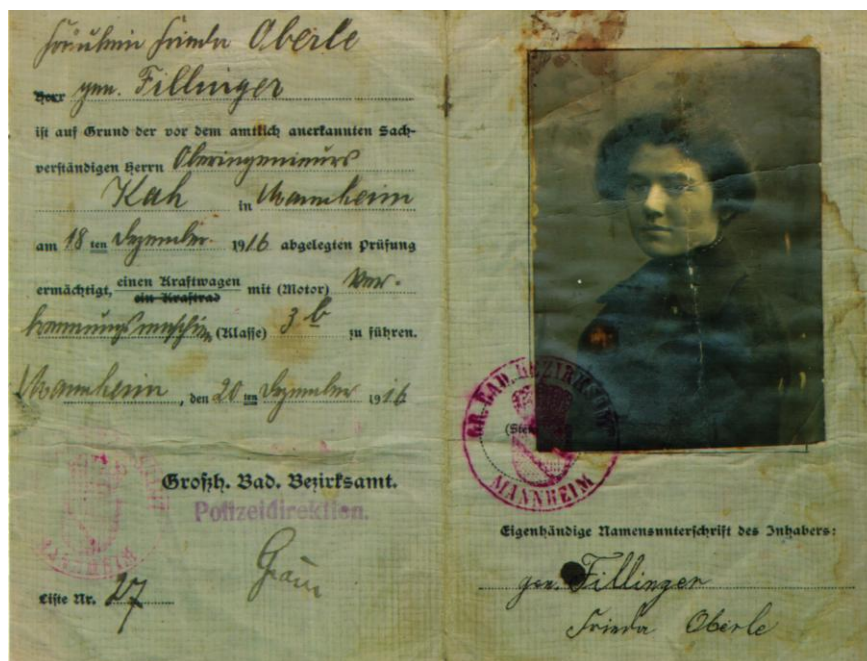 Fräulein Frieda Oberle
Herr gen. Fillinger
ist auf Grund der vor dem amtlich anerkannten Sach-
verständigen Herrn Oberingenieurs
Kah in Mannheim
am 18 ten Dezember 1916 abgelegten Prüfung
ermächtigt, einen Kraftwagen mit (Motor) Ver-
ein Kraftrad
brennungsmaschine (Klasse) 3 b zu führen.
Mannheim, den 20 ten Dezember 1916
Großh. Bad. Bezirksamt.
Polizeidirektion.
Liste Nr. 27
GR. BAD. BEZIRKSAMT
MANNHEIM
Eigenhändige Namensunterschrift des Inhabers:
gen. Fillinger
Frieda Oberle